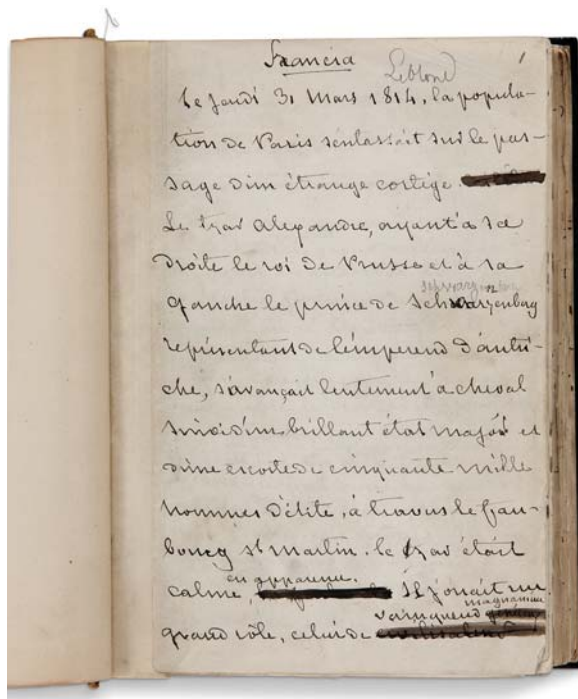 Francia
Leblond
1
le Jeudi 31 Mars 1814, la popula-
tion de Paris s'entassait sur le pas-
sage d'un étrange cortège.
Le tzar Alexandre, ayant à sa
droite le roi de Prusse et à sa
gauche le prince de Schwarzenberg
représentant de l'empereur d'Autri-
che, s'avançait lentement à cheval
suivi d'un brillant état major et
d'une escorte de cinquante mille
hommes d'élite, à travers le fau-
bourg st Martin. le tzar était
calme, en apparence. Il jouait un
grand rôle, celui de vainqueur magnanime